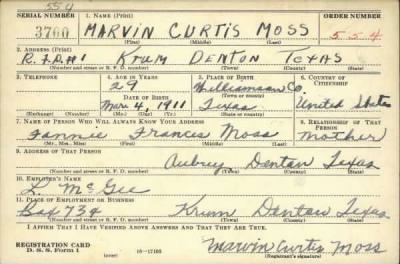 554
SERIAL NUMBER 1. NAME (Print) ORDER NUMBER
3760 MARVIN CURTIS MOSS 554
(First) (Middle) (Last)
2. ADDRESS (Print)
R.F.D.#1 KRUM DENTON TEXAS
(Number and street or R. F. D. number) (Town) (County) (State)
3. TELEPHONE 4. AGE IN YEARS 5. PLACE OF BIRTH 6. COUNTRY OF CITIZENSHIP
29 Williamson Co.
DATE OF BIRTH (Town or county)
Mar 4, 1911 Texas United States
(Exchange) (Number) (Mo.) (Day) (Yr.) (State or country)
7. NAME OF PERSON WHO WILL ALWAYS KNOW YOUR ADDRESS 8. RELATIONSHIP OF THAT PERSON
Fannie Frances Moss Mother
(Mr., Mrs., Miss) (First) (Middle) (Last)
9. ADDRESS OF THAT PERSON
Aubrey Denton Texas
(Number and street or R. F. D. number) (Town) (County) (State)
10. EMPLOYER'S NAME
L. McGee
11. PLACE OF EMPLOYMENT OR BUSINESS
Box 734 Krum Denton Texas
(Number and street or R. F. D. number) (Town) (County) (State)
I AFFIRM THAT I HAVE VERIFIED ABOVE ANSWERS AND THAT THEY ARE TRUE.
REGISTRATION CARD
D. S. S. Form 1 (over) 16—17105 Marvin Curtis Moss
(Registrant's signature)